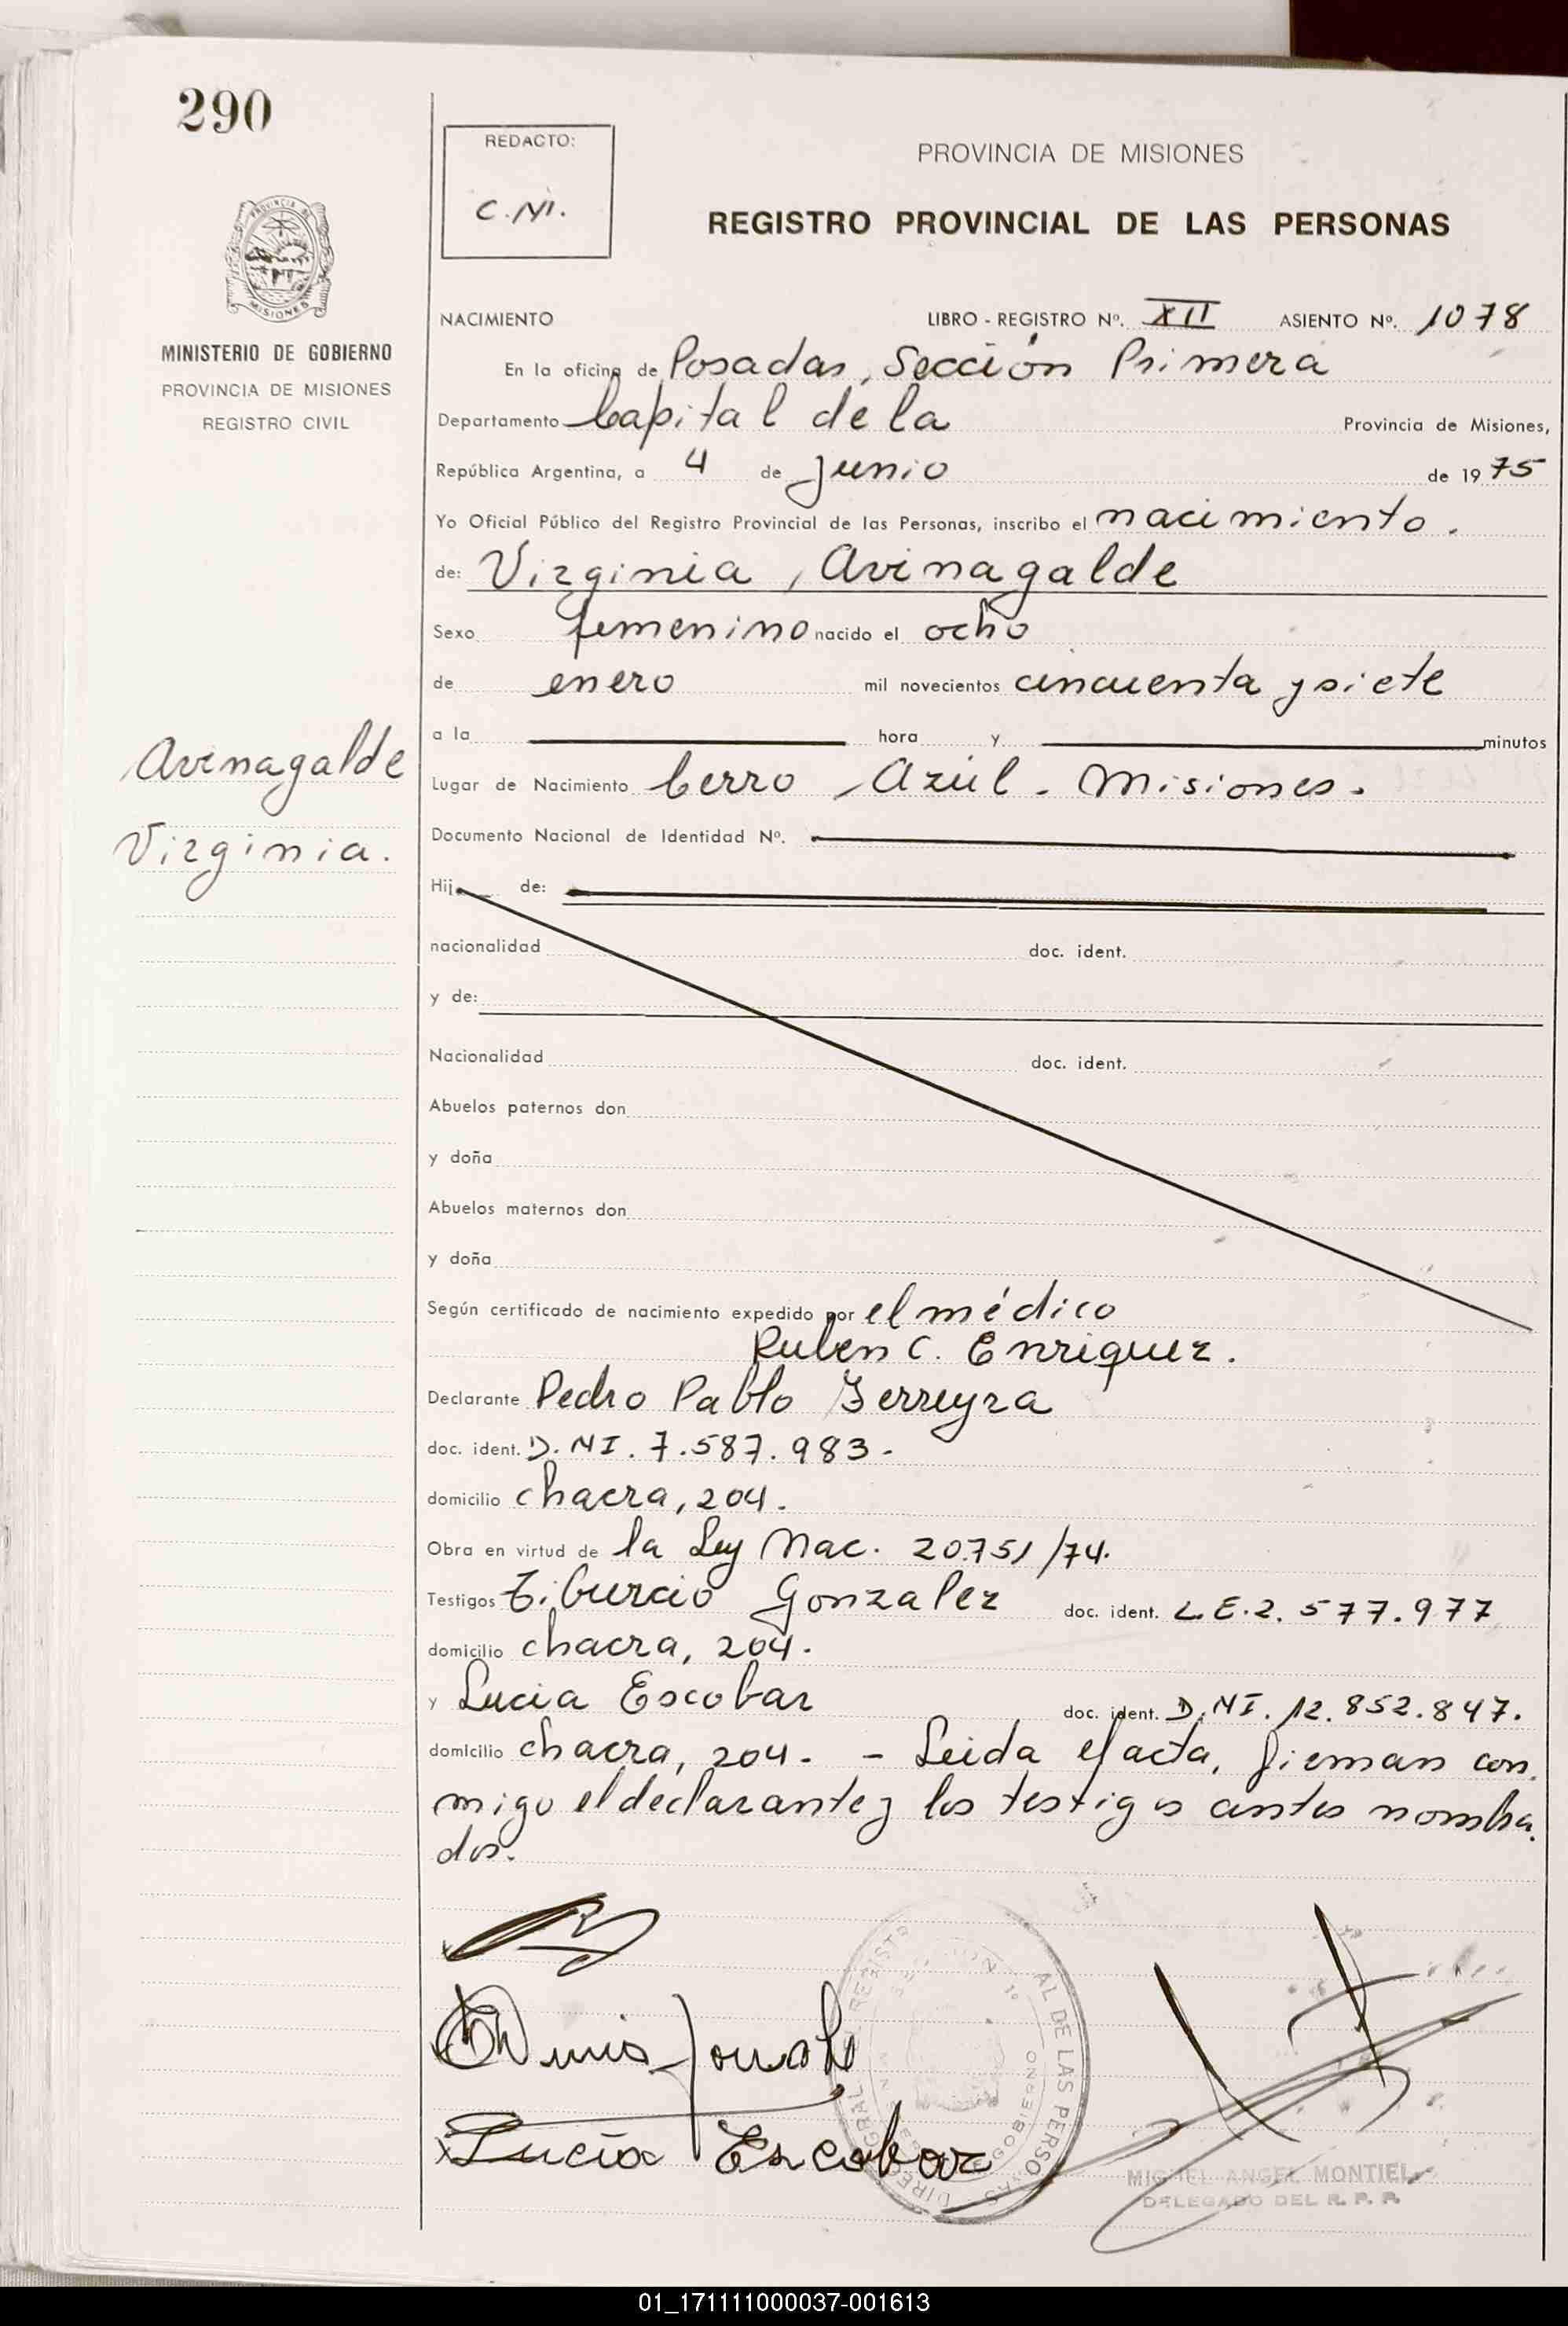 290
REDACTO:
C.M.
PROVINCIA DE MISIONES
REGISTRO PROVINCIAL DE LAS PERSONAS
PROVINCIA DE
MISIONES
MINISTERIO DE GOBIERNO
PROVINCIA DE MISIONES
REGISTRO CIVIL
NACIMIENTO LIBRO - REGISTRO Nº. XII ASIENTO Nº. 1078
En la oficina de Posadas, Sección Primera
Departamento Capital de la Provincia de Misiones,
República Argentina, a 4 de junio de 1975
Yo Oficial Público del Registro Provincial de las Personas, inscribo el nacimiento.
de: Virginia, Avinagalde
Sexo femenino nacido el ocho
de enero mil novecientos cincuenta y siete
a la hora y minutos
Avinagalde
Virginia.
Lugar de Nacimiento Cerro, Azúl. Misiones.
Documento Nacional de Identidad Nº.
Hij de:
nacionalidad doc. ident.
y de:
Nacionalidad doc. ident.
Abuelos paternos don
y doña
Abuelos maternos don
y doña
Según certificado de nacimiento expedido por el médico
Ruben C. Enriquez.
Declarante Pedro Pablo Ferreyra
doc. ident. D.NI. 7.587.983.
domicilio chacra, 204.
Obra en virtud de la Ley Nac. 20751/74.
Testigos Tiburcio Gonzalez doc. ident. L.E.2.577.977
domicilio chacra, 204.
y Lucia Escobar doc. ident. D.NI. 12.852.847.
domicilio chacra, 204. - Leida el acta, firman con
migo el declarante y los testigos antes nombra.
dos.
Lucía Escobar
AL DE LAS PERSO
GOBIERNO
MIGUEL ANGEL MONTIEL
DELEGADO DEL R. P. P.
01_171111000037-001613